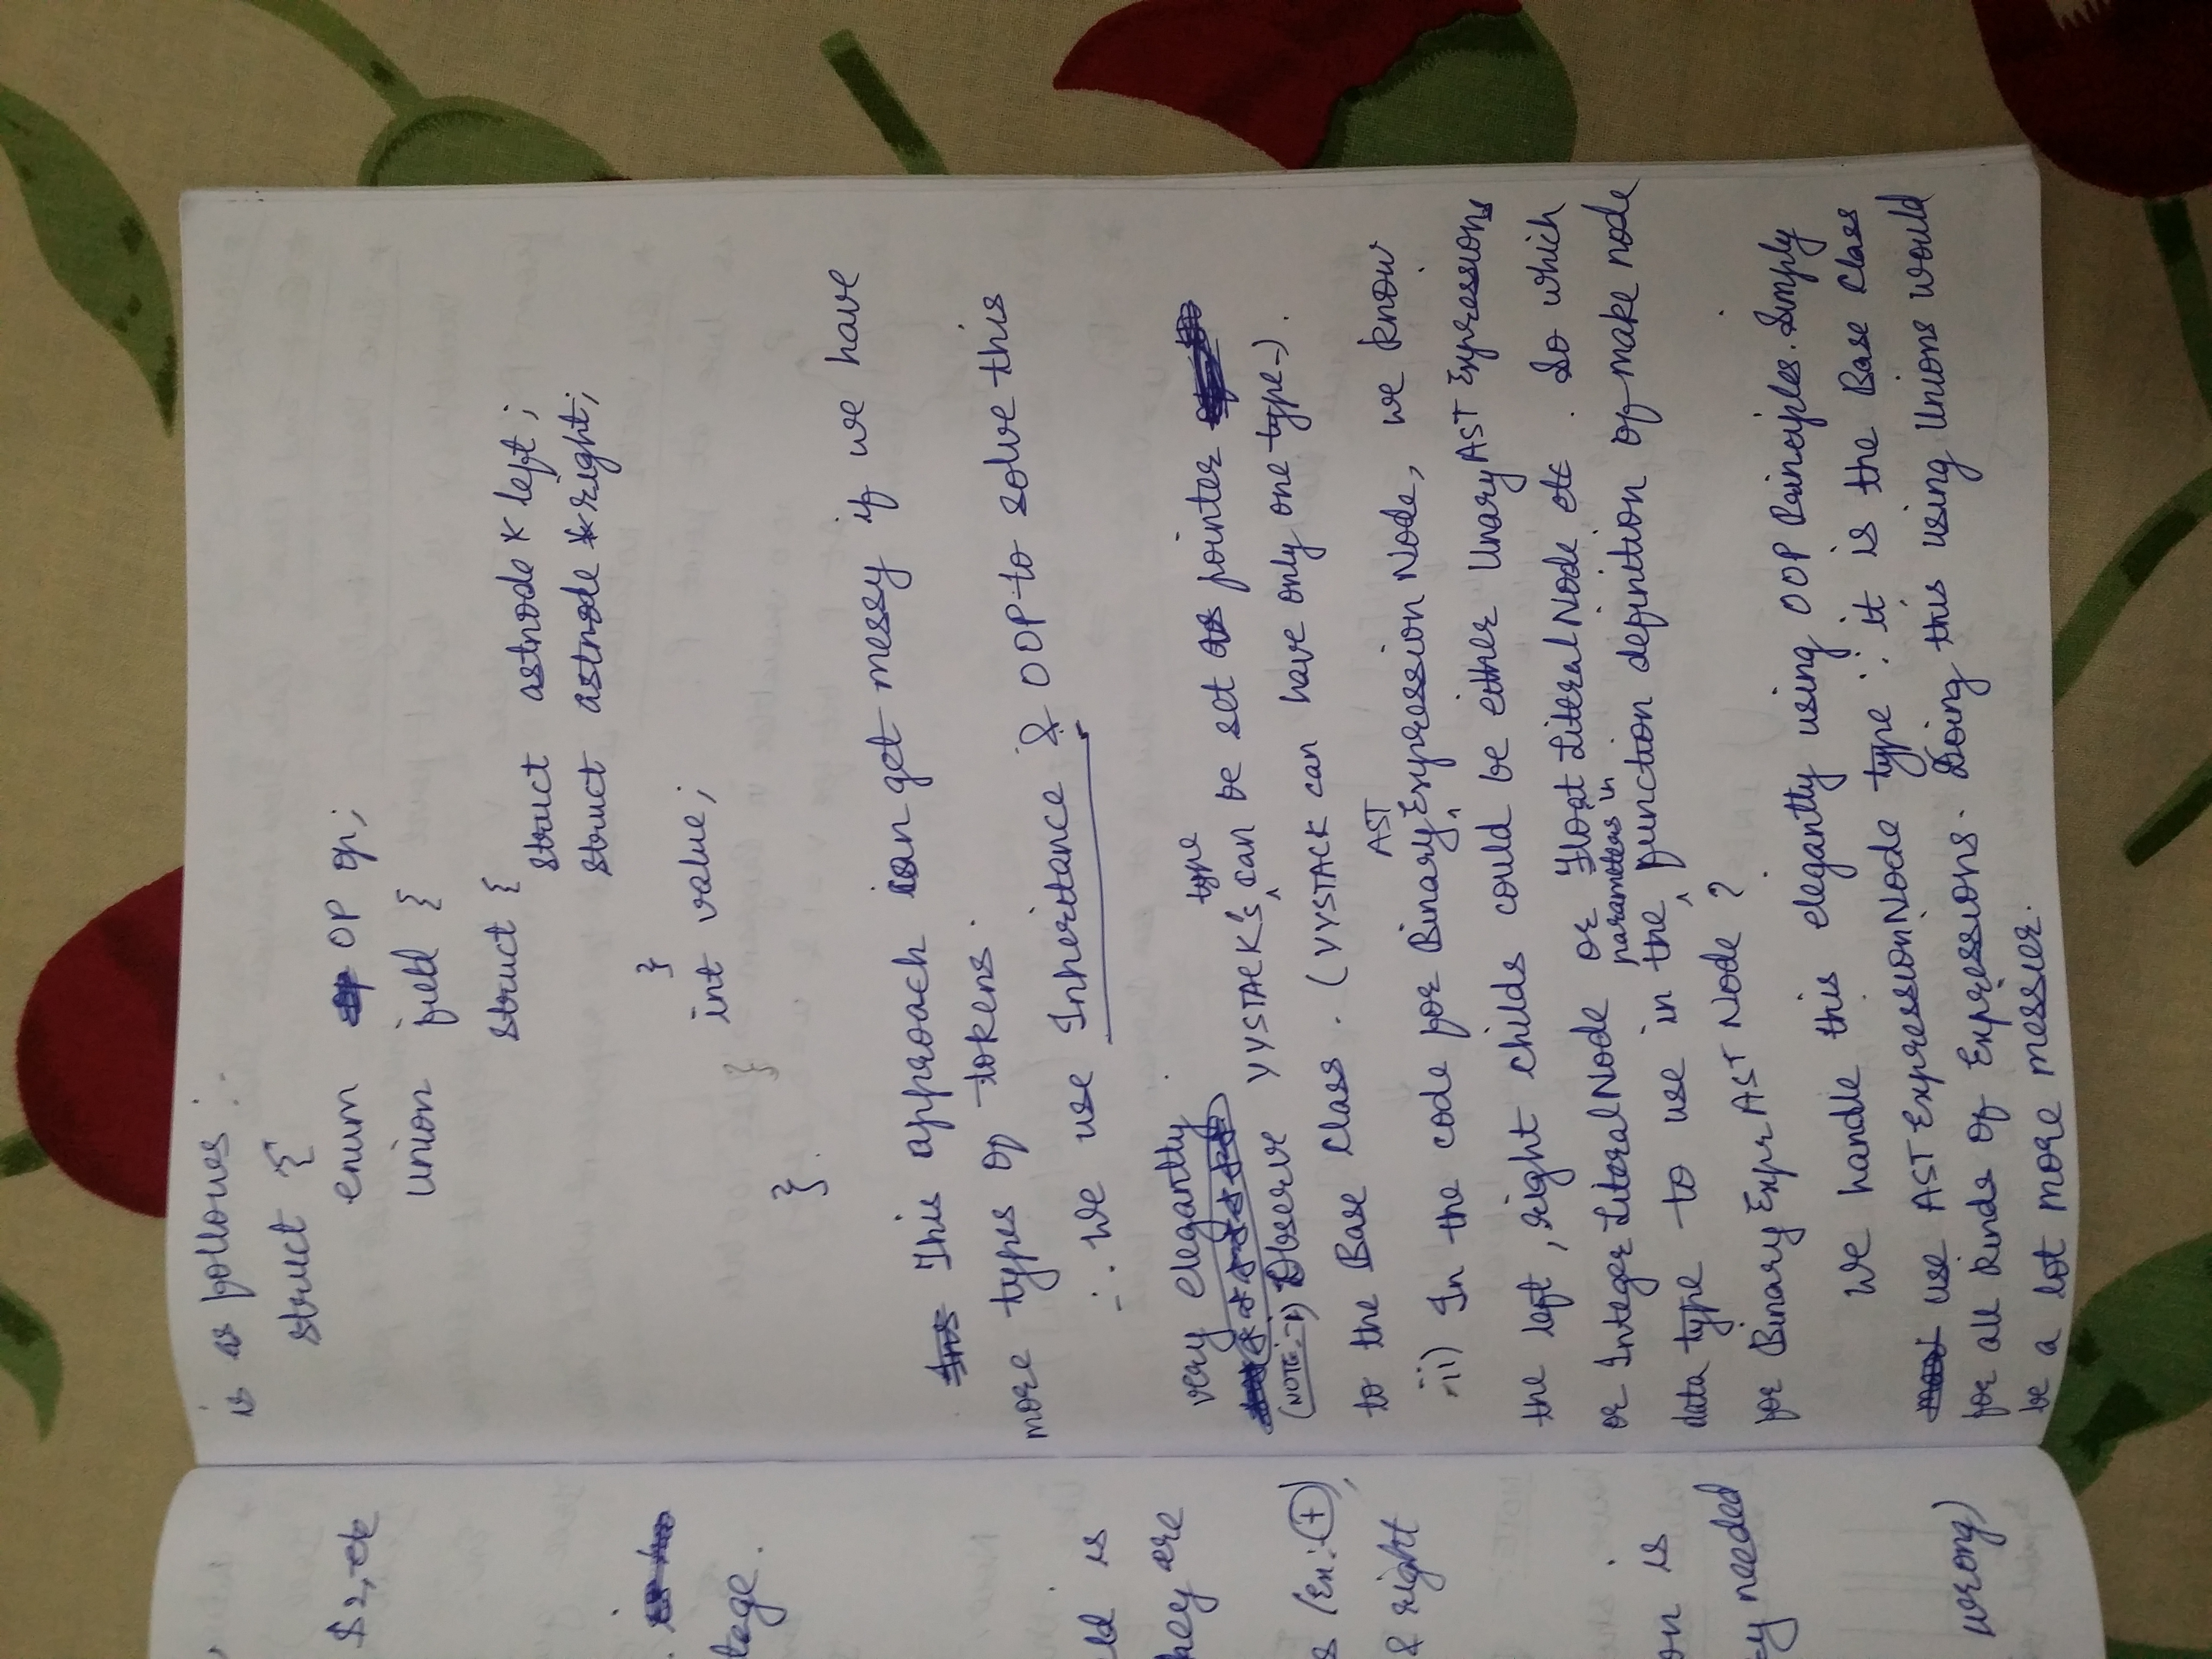 $2, etc
tage.
is
hey are
s (Ex: +),
& right
on is
needed
wrong)
is as follows :
struct {
enum OP op;
union field {
struct {
struct astnode * left ;
struct astnode * right;
}
int value;
}
}.
This approach can get messy if we have
more types of tokens.
∴ We use Inheritance & OOP to solve this
very elegantly
type
(NOTE:-i) Observe YYSTACK's ^ can be set as pointer
to the Base Class. (YYSTACK can have only one type-).
AST
ii) In the code for Binary ^ Expression Node, we know
the left, right childs could be either Unary AST Expressions
or Integer Literal Node or Float Literal Node etc. So which
parameters in
data type to use in the ^ function definition of make node
for Binary Expr AST Node ?
We handle this elegantly using OOP Principles. Simply
use AST Expression Node type ∵ it is the Base Class
for all kinds of Expressions. Doing this using Unions would
be a lot more messier.